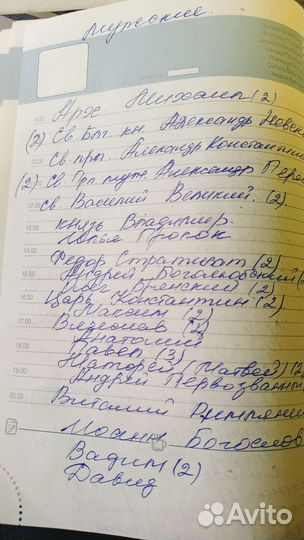 Мужские.
9.00 Арх Михаил (2)
(2) Св. Бл. кн. Александр Невск
10.00 Св. прп. Александр Константин
(2) Св. Прп. муч. Александр Перо
12.00 св Василий Великий. (2)
13.00 князь Владимир.
Илья Пророк
14.00 Федор Стратилат (2)
Андрей Боголюбский (2)
15.00 Олег Брянский (2)
16.00 Царь Константин (2)
Максим (2)
17.00 Вячеслав (2)
Анатолий
18.00 Павел (3)
Матфей (Матвей) (2
19.00 Андрей Первозванный
20.00 Виталий Римлянин
Иоанн Богослов
Вадим (2)
Давид
Avito